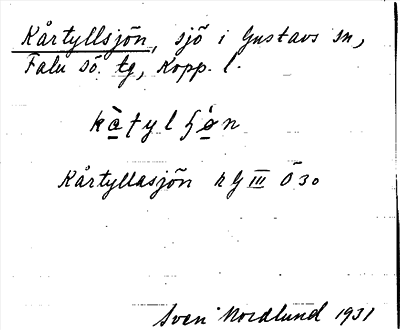 Kårtyllsjön, sjö i Gustavs sn,
Falu sö. tg, Kopp. l.
Kårtyllasjön RG III Ö 30
Sven Nordlund 1931